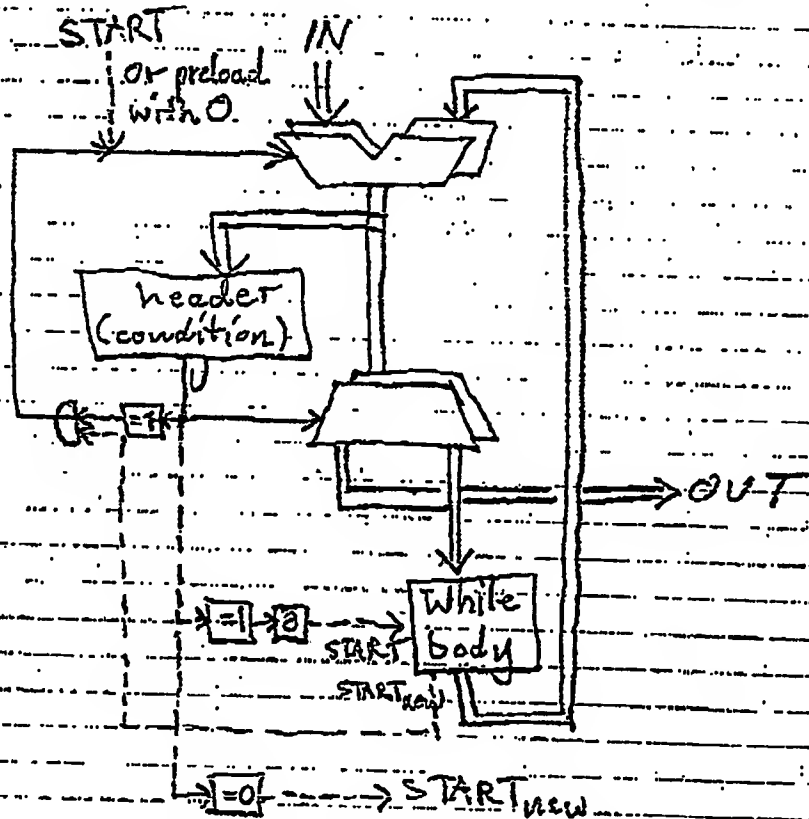 START
IN
or preload
with 0
header
(condition)
=1
OUT
=1
START
While
body
STARTnew
=0
STARTnew